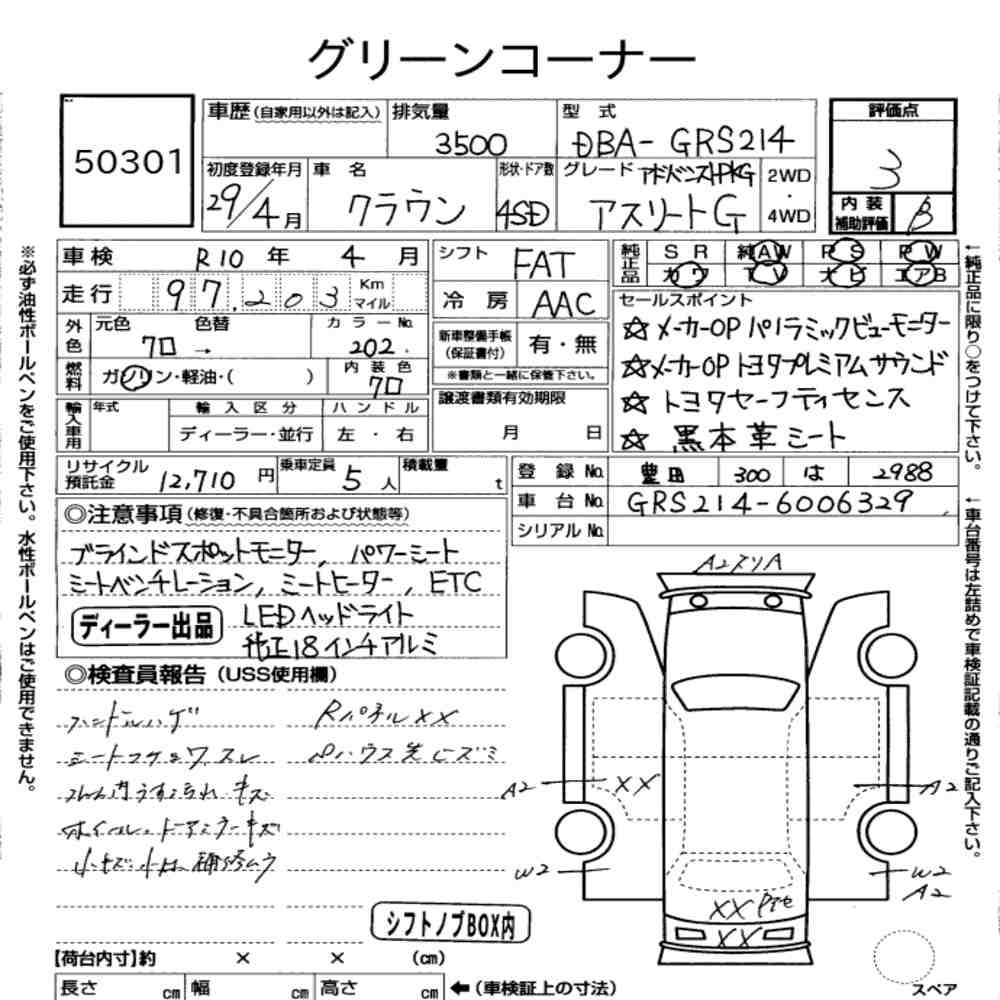 グリーンコーナー
50301
車歴(自家用以外は記入) 排気量 3500 型 式 DBA-GRS214
評価点 3
初度登録年月 29/4月 車 名 クラウン 形状・ドア数 4SD グレード アドバンストPKG アスリートG 2WD・4WD
内装補助評価 B
車検 R10 年 4 月 シフト FAT
純正品 S R 純AW P S P W
カワ T V ナビ エアB
走行 97,203 Km マイル 冷 房 AAC
セールスポイント
☆メーカーOP パノラミックビューモニター
☆メーカーOP トヨタプレミアムサウンド
☆トヨタセーフティセンス
☆黒本革シート
外色 元色 クロ → 色替 カラーNo. 202
新車整備手帳(保証書付) 有・無
※書類と一緒に保管下さい。
燃料 ガソリン・軽油・( ) 内装色 クロ
譲渡書類有効期限 月 日
輸入車用 年式 輸入区分 ハンドル
ディーラー・並行 左・右
リサイクル預託金 12,710 円 乗車定員 5 人 積載量 t
登 録 No. 豊田 300 は 2988
車 台 No. GRS214-6006329
シリアル No.
◎注意事項(修復・不具合箇所および状態等)
ブラインドスポットモニター, パワーシート
シートベンチレーション, シートヒーター, ETC
LEDヘッドライト
ディーラー出品
純正18インチアルミ
◎検査員報告(USS使用欄)
ハンドルハゲ
RパネルXX
シートコゲ
キズ
ホイール、ドアミラーキズ
小キズ 補修ムラ
シフトノブBOX内
A2
XX
A2
W2
W2
A2
XX
XX
スペア
【荷台内寸】約 × × (cm)
長さ cm 幅 cm 高さ cm ←(車検証上の寸法)
※必ず油性ボールペンをご使用下さい。水性ボールペンはご使用できません。
←純正品に限り○をつけて下さい。
←車台番号は左詰めで車検証記載の通りご記入下さい。